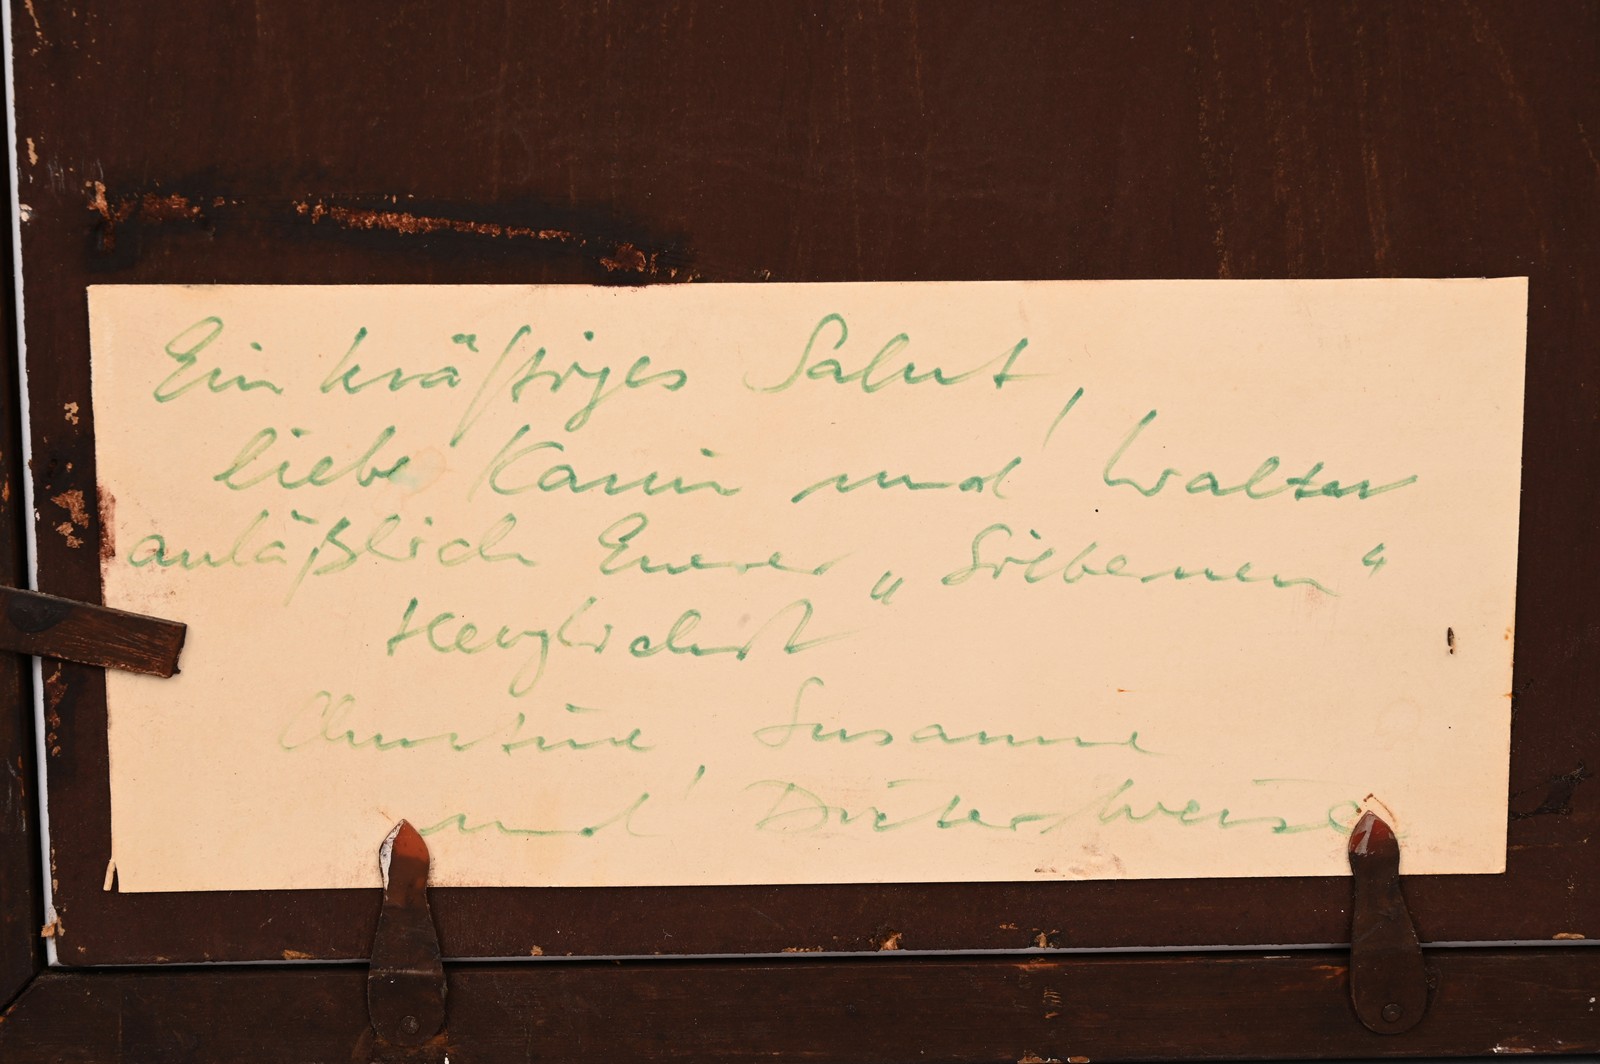 Ein kräftiges Salut,
liebe Karin und Walter
anläßlich Euerer „Silbernen“
Herzlichst
Christine, Susanne
und Dieter Weise